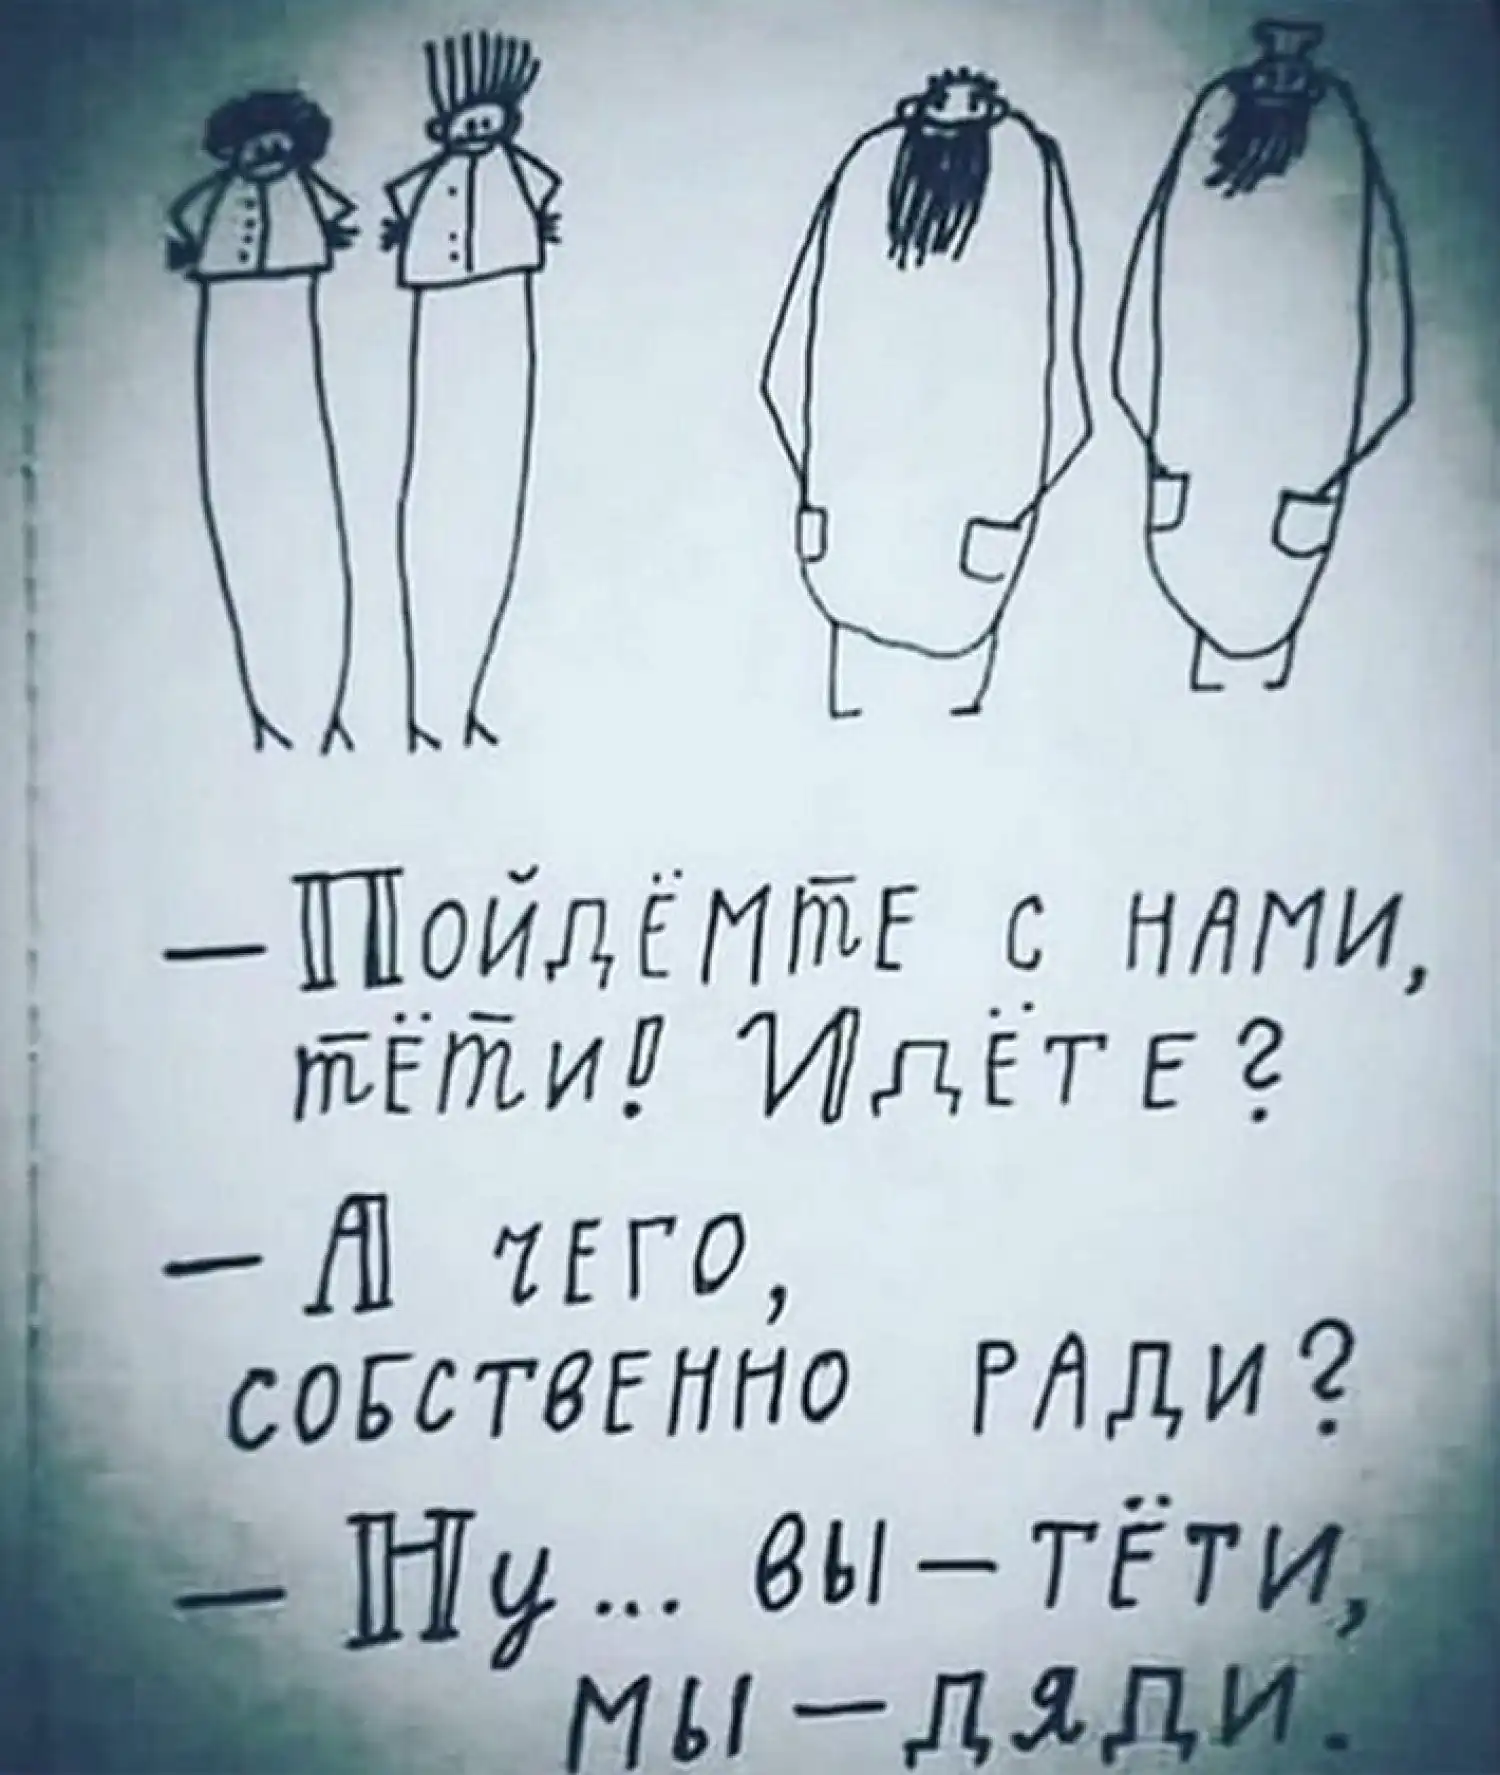 — Пойдёмте с нами,
тёти! Идёте?
— А чего,
собственно ради?
— Ну... вы — тёти,
мы — дяди.